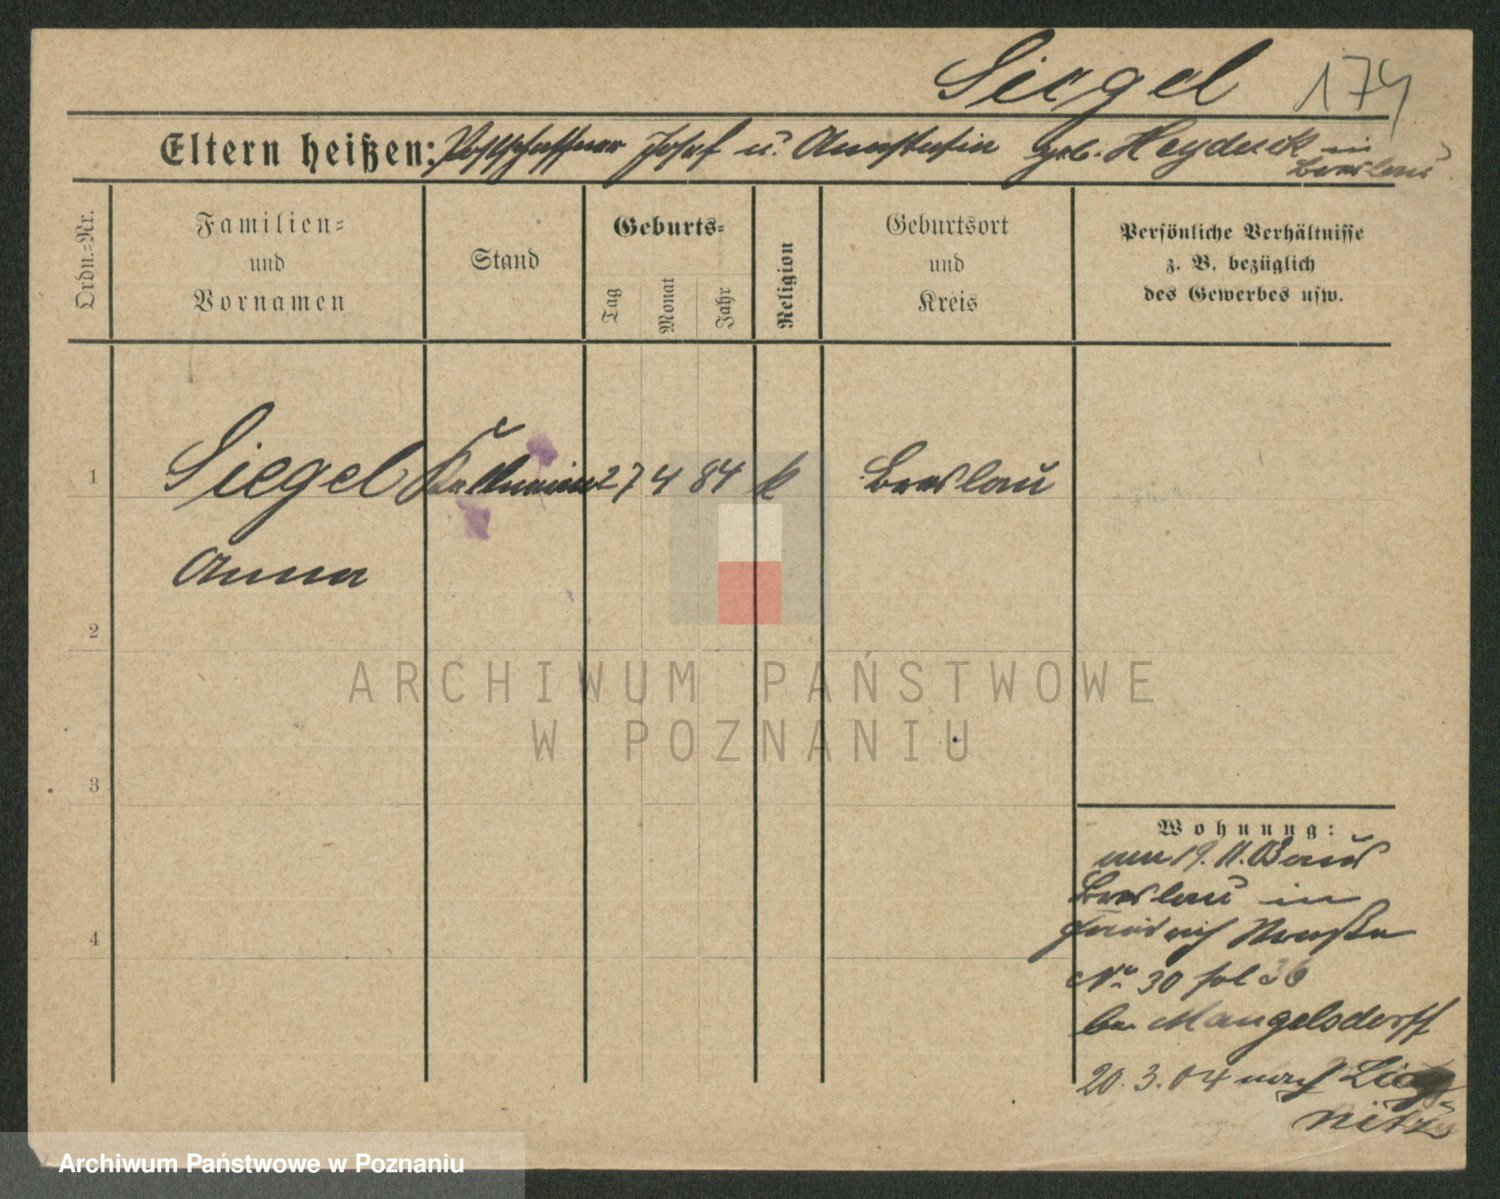 Siegel 174
Eltern heißen: Postschaffner Josef u. Anastasia geb. Heyduck in Breslau
Ordn.=Nr.
Familien=
und
Vornamen
Stand
Geburts=
Tag
Monat
Jahr
Religion
Geburtsort
und
Kreis
Persönliche Verhältnisse
z. B. bezüglich
des Gewerbes usw.
1 Siegel 27 4 84 k Breslau
Anna
2
ARCHIWUM PAŃSTWOWE
W POZNANIU
3
Wohnung:
am 19. 11. 03 aus
Breslau in
straße
4
No 30 36
bei Mangelsdorff
20. 3. 04 nach Lieg-
nitz
Archiwum Państwowe w Poznaniu